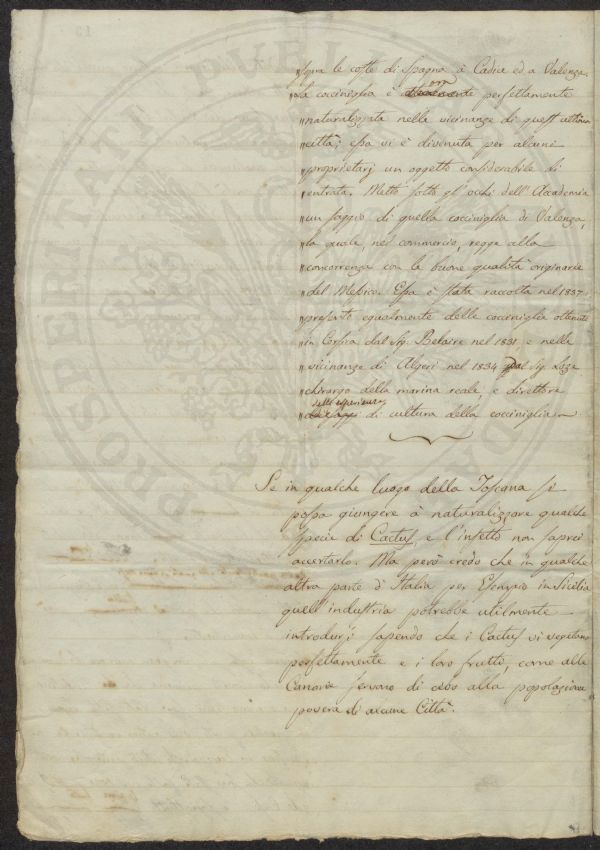 "sopra le coste di Spagna à Cadice ed a Valenza.
"La cocciniglia è ora perfettamente
"naturalizzata nella vicinanze di quest'ultima
"città; essa vi è divenuta per alcuni
"proprietarj un oggetto considerabile di
"entrata. Metto sotto gl'occhi dell'Accademia
"un saggio di quella cocciniglia di Valenza,
"la quale, nel commercio, regge alla
"concorrenza con la buone qualità originarie
"del Messico. Essa è stata raccolta nel 1837.
"presento egualmente delle cocciniglia ottenute
"in Corsica dal Sig. Belaire nel 1831 e nelle
"vicinanze di Algeri nel 1834 dal Sig. Loze
"chirurgo della marina reale, e direttore
dell'esperienza
"di cultura della cocciniglia
Se in qualche luogo della Toscana si
possa giungere à naturalizzare qualche
specie di Cactus e l'insetto non saprei
accertarlo. Ma però credo che in qualche
altra parte d'Italia per Esempio in Sicilia
quell'industria potrebbe utilmente
introdursi sapendo che i Cactus vi vegetano
perfettamente e i loro frutti, come alle
Canarie servono di cibo alla popolazione
povera di alcune Città.
PRO PUBLI